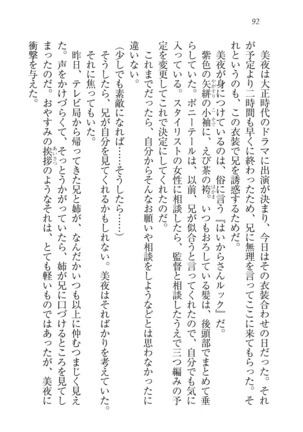 92
　美夜は大正時代のドラマに出演が決まり、今日はその衣装合わせの日だった。それ
が予定より二時間も早くに終わったため、兄に無理を言ってここに来てもらった。そ
れというのも、この衣装で兄を誘惑するためだ。
　美夜が身につけているのは、俗に言う『はいからさんルック』だ。
　紫色の矢絣の小袖に、えび茶の袴。いつもおろしている髪は、後頭部でまとめて垂
らしていた。ポニーテールは、以前、兄が似合うと言ってくれたので、自分でも気に
入っている。スタイリストの女性に相談したら、監督と相談したうえで三つ編みの予
定を変更してこれで決定にしてくれた。
　これまでだったら、自分からそんなお願いや相談をしようなどとは思わなかったに
違いない。
（少しでも素敵になれば……そうしたら……）
　そうしたら、兄が自分を見てくれるかもしれない。美夜はそればかりを考えていた。
それに焦ってもいた。
　昨日、テレビ局から帰ってきた兄と姉が、なんだかいつも以上に仲むつまじく見え
た。声をかけづらくて、そっとうかがっていたら、姉が兄に口づけるところを見てし
まったのだ。おやすみの挨拶のようなそれは、とても軽いものではあったが、美夜に
衝撃を与えた。